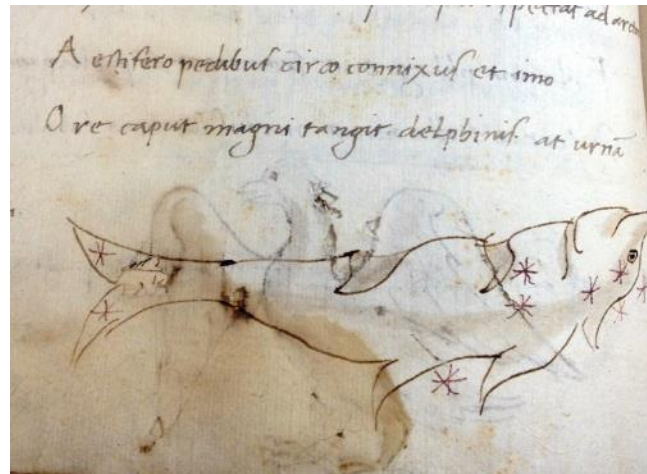 spectat ad arct
A estifero pedibus circo connixus et imo
O re caput magni tangit delphinis at urnā